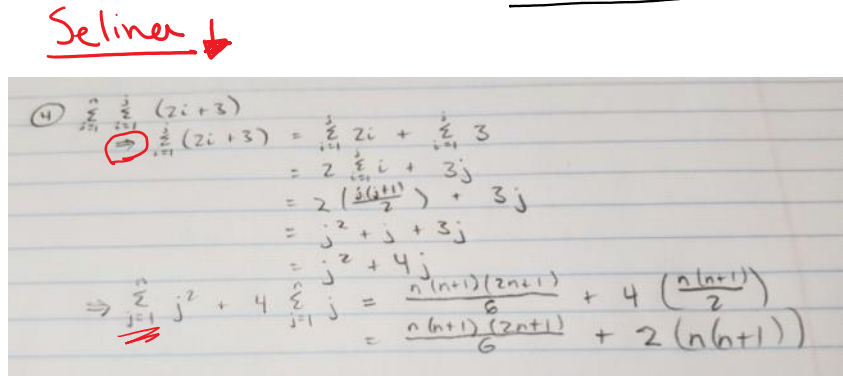 Seliner ↓
④ Σ_{j=1}^{n} Σ_{i=1}^{j} (2i + 3)
⇒ Σ_{i=1}^{j} (2i + 3) = Σ_{i=1}^{j} 2i + Σ_{i=1}^{j} 3
= 2 Σ_{i=1}^{j} i + 3j
= 2 (j(j+1)/2) + 3j
= j² + j + 3j
= j² + 4j
⇒ Σ_{j=1}^{n} j² + 4 Σ_{j=1}^{n} j = n(n+1)(2n+1)/6 + 4 (n(n+1)/2)
= n(n+1)(2n+1)/6 + 2(n(n+1))